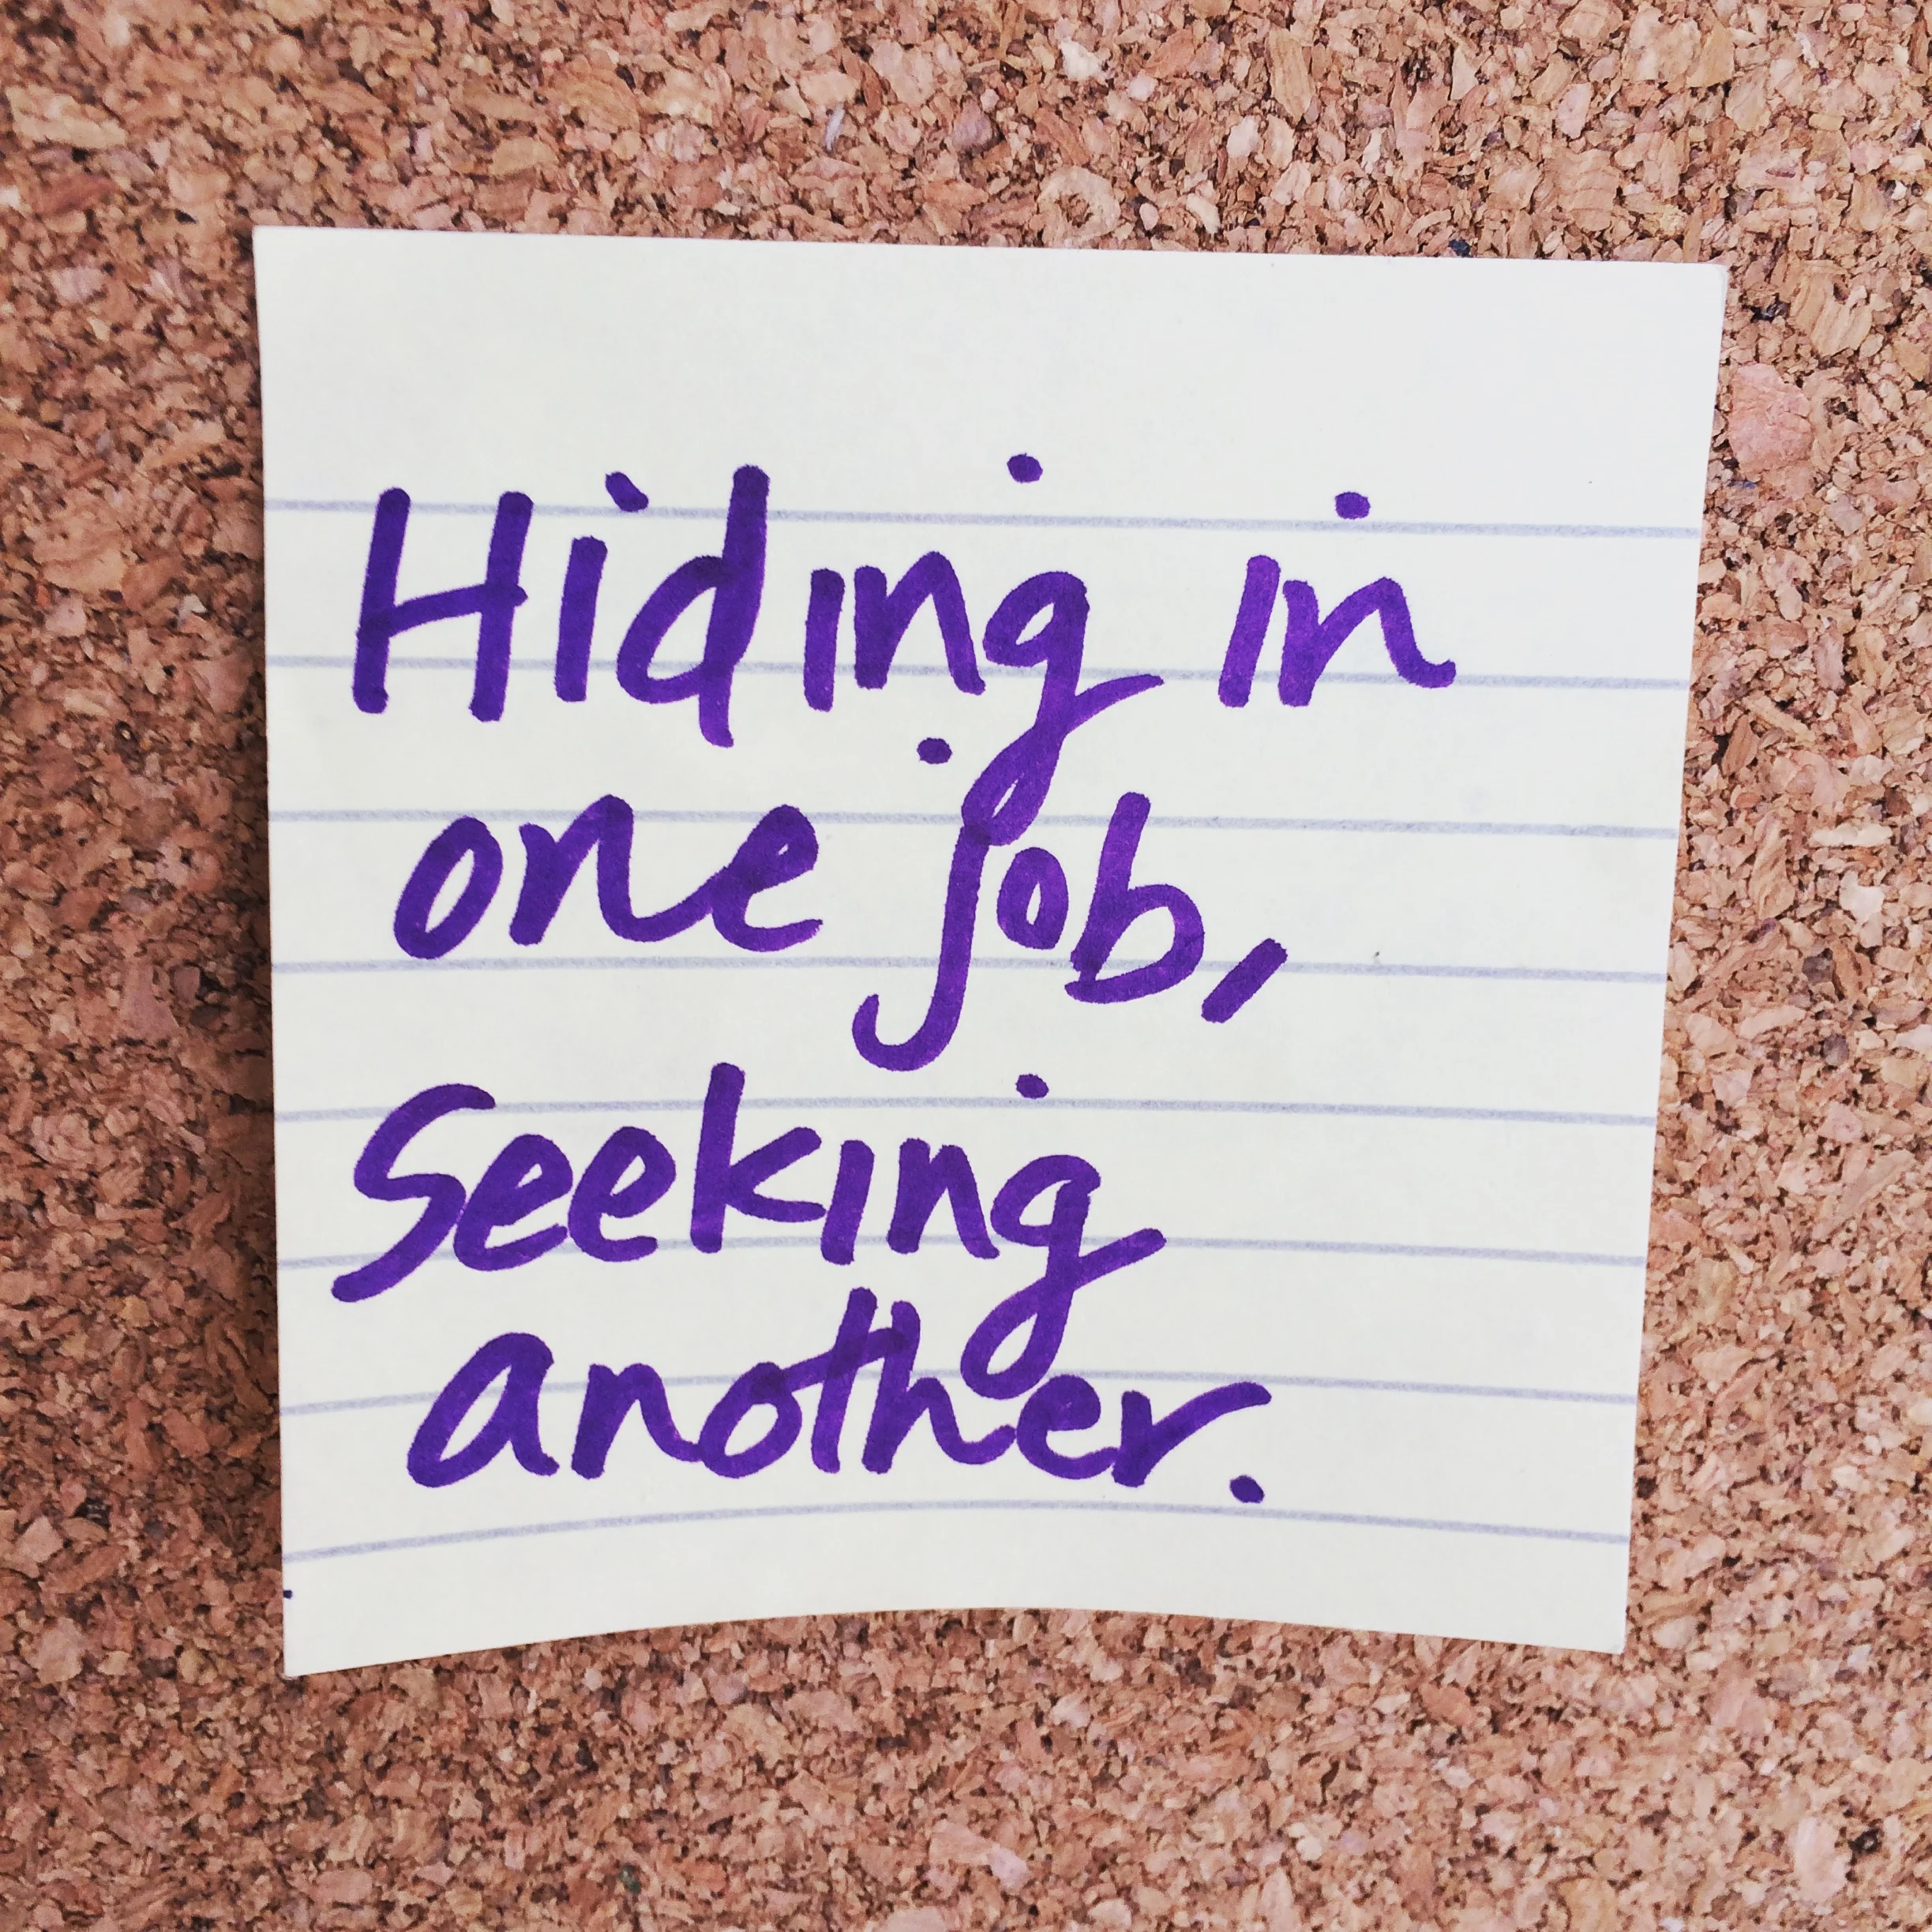 Hiding in
one job,
Seeking
another.